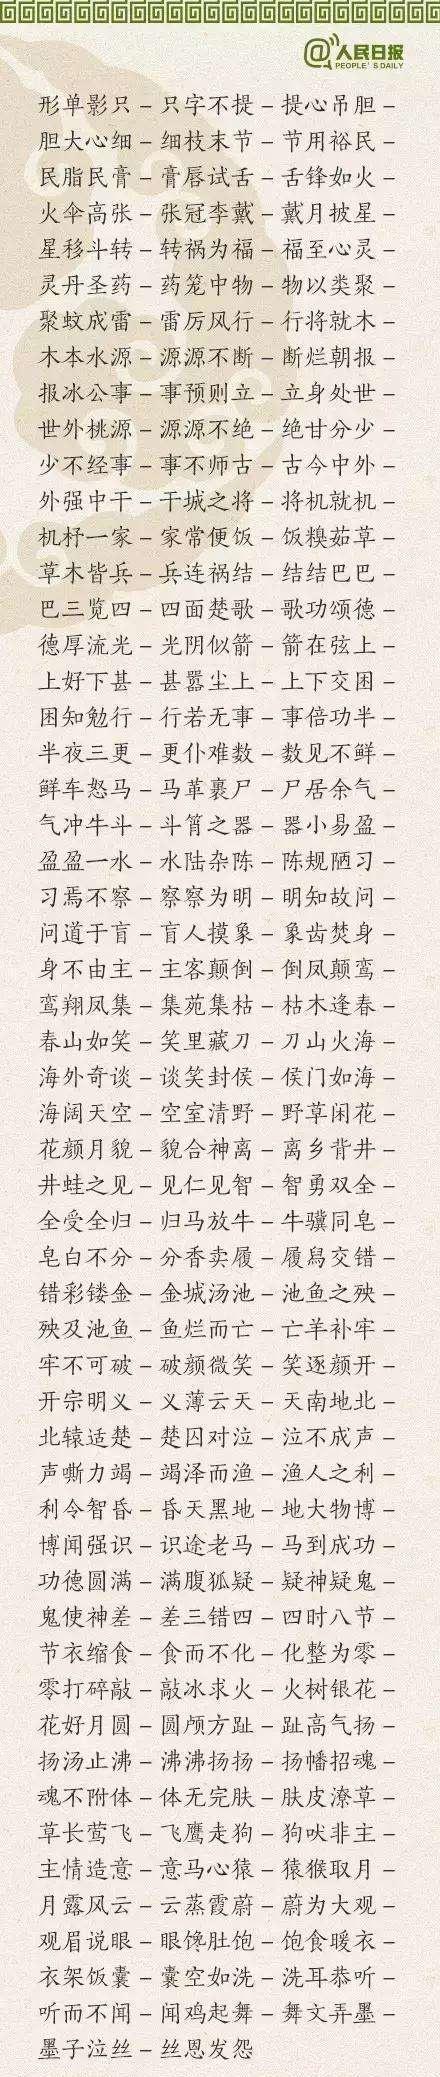 @人民日报
PEOPLE'S DAILY
形单影只－只字不提－提心吊胆－
胆大心细－细枝末节－节用裕民－
民脂民膏－膏唇试舌－舌锋如火－
火伞高张－张冠李戴－戴月披星－
星移斗转－转祸为福－福至心灵－
灵丹圣药－药笼中物－物以类聚－
聚蚊成雷－雷厉风行－行将就木－
木本水源－源源不断－断烂朝报－
报冰公事－事预则立－立身处世－
世外桃源－源源不绝－绝甘分少－
少不经事－事不师古－古今中外－
外强中干－干城之将－将机就机－
机杼一家－家常便饭－饭糗茹草－
草木皆兵－兵连祸结－结结巴巴－
巴三览四－四面楚歌－歌功颂德－
德厚流光－光阴似箭－箭在弦上－
上好下甚－甚嚣尘上－上下交困－
困知勉行－行若无事－事倍功半－
半夜三更－更仆难数－数见不鲜－
鲜车怒马－马革裹尸－尸居余气－
气冲牛斗－斗筲之器－器小易盈－
盈盈一水－水陆杂陈－陈规陋习－
习焉不察－察察为明－明知故问－
问道于盲－盲人摸象－象齿焚身－
身不由主－主客颠倒－倒凤颠鸾－
鸾翔凤集－集苑集枯－枯木逢春－
春山如笑－笑里藏刀－刀山火海－
海外奇谈－谈笑封侯－侯门如海－
海阔天空－空室清野－野草闲花－
花颜月貌－貌合神离－离乡背井－
井蛙之见－见仁见智－智勇双全－
全受全归－归马放牛－牛骥同皂－
皂白不分－分香卖履－履舄交错－
错彩镂金－金城汤池－池鱼之殃－
殃及池鱼－鱼烂而亡－亡羊补牢－
牢不可破－破颜微笑－笑逐颜开－
开宗明义－义薄云天－天南地北－
北辕适楚－楚囚对泣－泣不成声－
声嘶力竭－竭泽而渔－渔人之利－
利令智昏－昏天黑地－地大物博－
博闻强识－识途老马－马到成功－
功德圆满－满腹狐疑－疑神疑鬼－
鬼使神差－差三错四－四时八节－
节衣缩食－食而不化－化整为零－
零打碎敲－敲冰求火－火树银花－
花好月圆－圆颅方趾－趾高气扬－
扬汤止沸－沸沸扬扬－扬幡招魂－
魂不附体－体无完肤－肤皮潦草－
草长莺飞－飞鹰走狗－狗吠非主－
主情造意－意马心猿－猿猴取月－
月露风云－云蒸霞蔚－蔚为大观－
观眉说眼－眼馋肚饱－饱食暖衣－
衣架饭囊－囊空如洗－洗耳恭听－
听而不闻－闻鸡起舞－舞文弄墨－
墨子泣丝－丝恩发怨